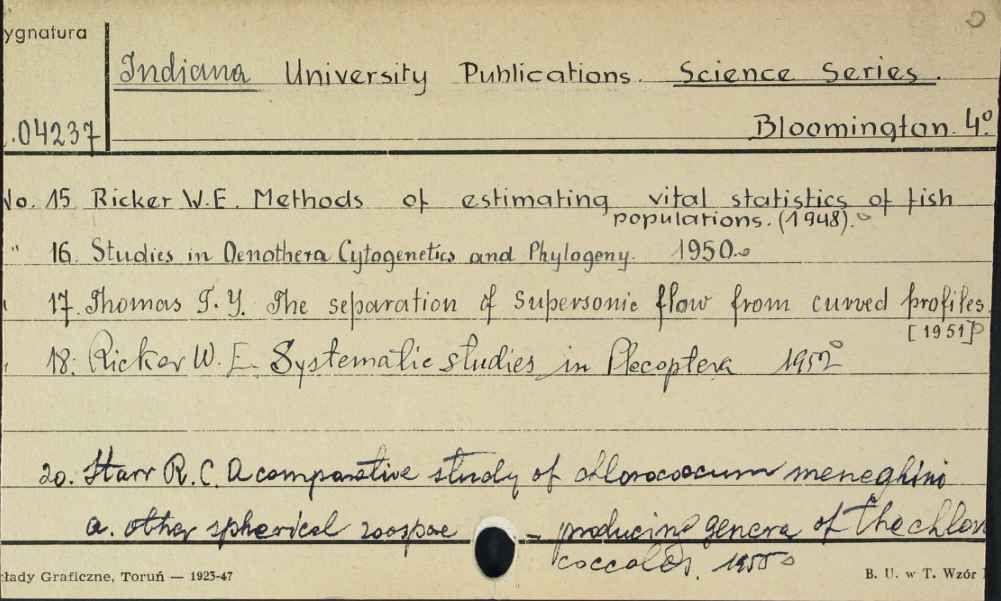 ygnatura
Indiana University Publications. Science Series.
.04237 Bloomington. 4°.
No. 15 Ricker W.E. Methods of estimating vital statistics of fish
populations. (1948).
" 16. Studies in Oenothera Cytogenetics and Phylogeny. 1950
17. Thomas T.Y. The separation of supersonic flow from curved profiles.
[1951]
18. Ricker W.E. Systematic studies in Plecoptera 1952
20. Starr R.C. A comparative study of chlorococcum meneghini
a. other spherical zoospoe - producing genera of the chloro
coccales. 1955
kłady Graficzne, Toruń — 1923-47 B. U. w T. Wzór